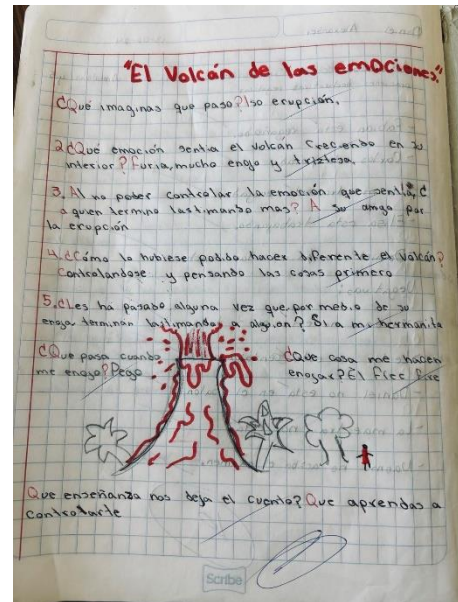 "El Volcán de las emociones"
¿Qué imaginas que paso? Iso erupción.
2.¿Qué emoción sentia el volcán creciendo en su
interior? Furia, mucho enojo y tristesa.
3. Al no poder controlar la emoción que sentia, ¿
a quien termino lastimando mas? A su amigo por
la erupción
4.¿Cómo lo hubiese podido hacer diferente el volcán?
Controlandose y pensando las cosas primero
5.¿Les ha pasado alguna vez que por medio de su
enojo terminan lastimando a alguien? Si a mi hermanita
¿Que pasa cuando
me enogo? Pego
¿Que cosa me hacen
enogar? El friec fire
Que enseñanza nos deja el cuento? Que aprendas a
controlarte
Scribe